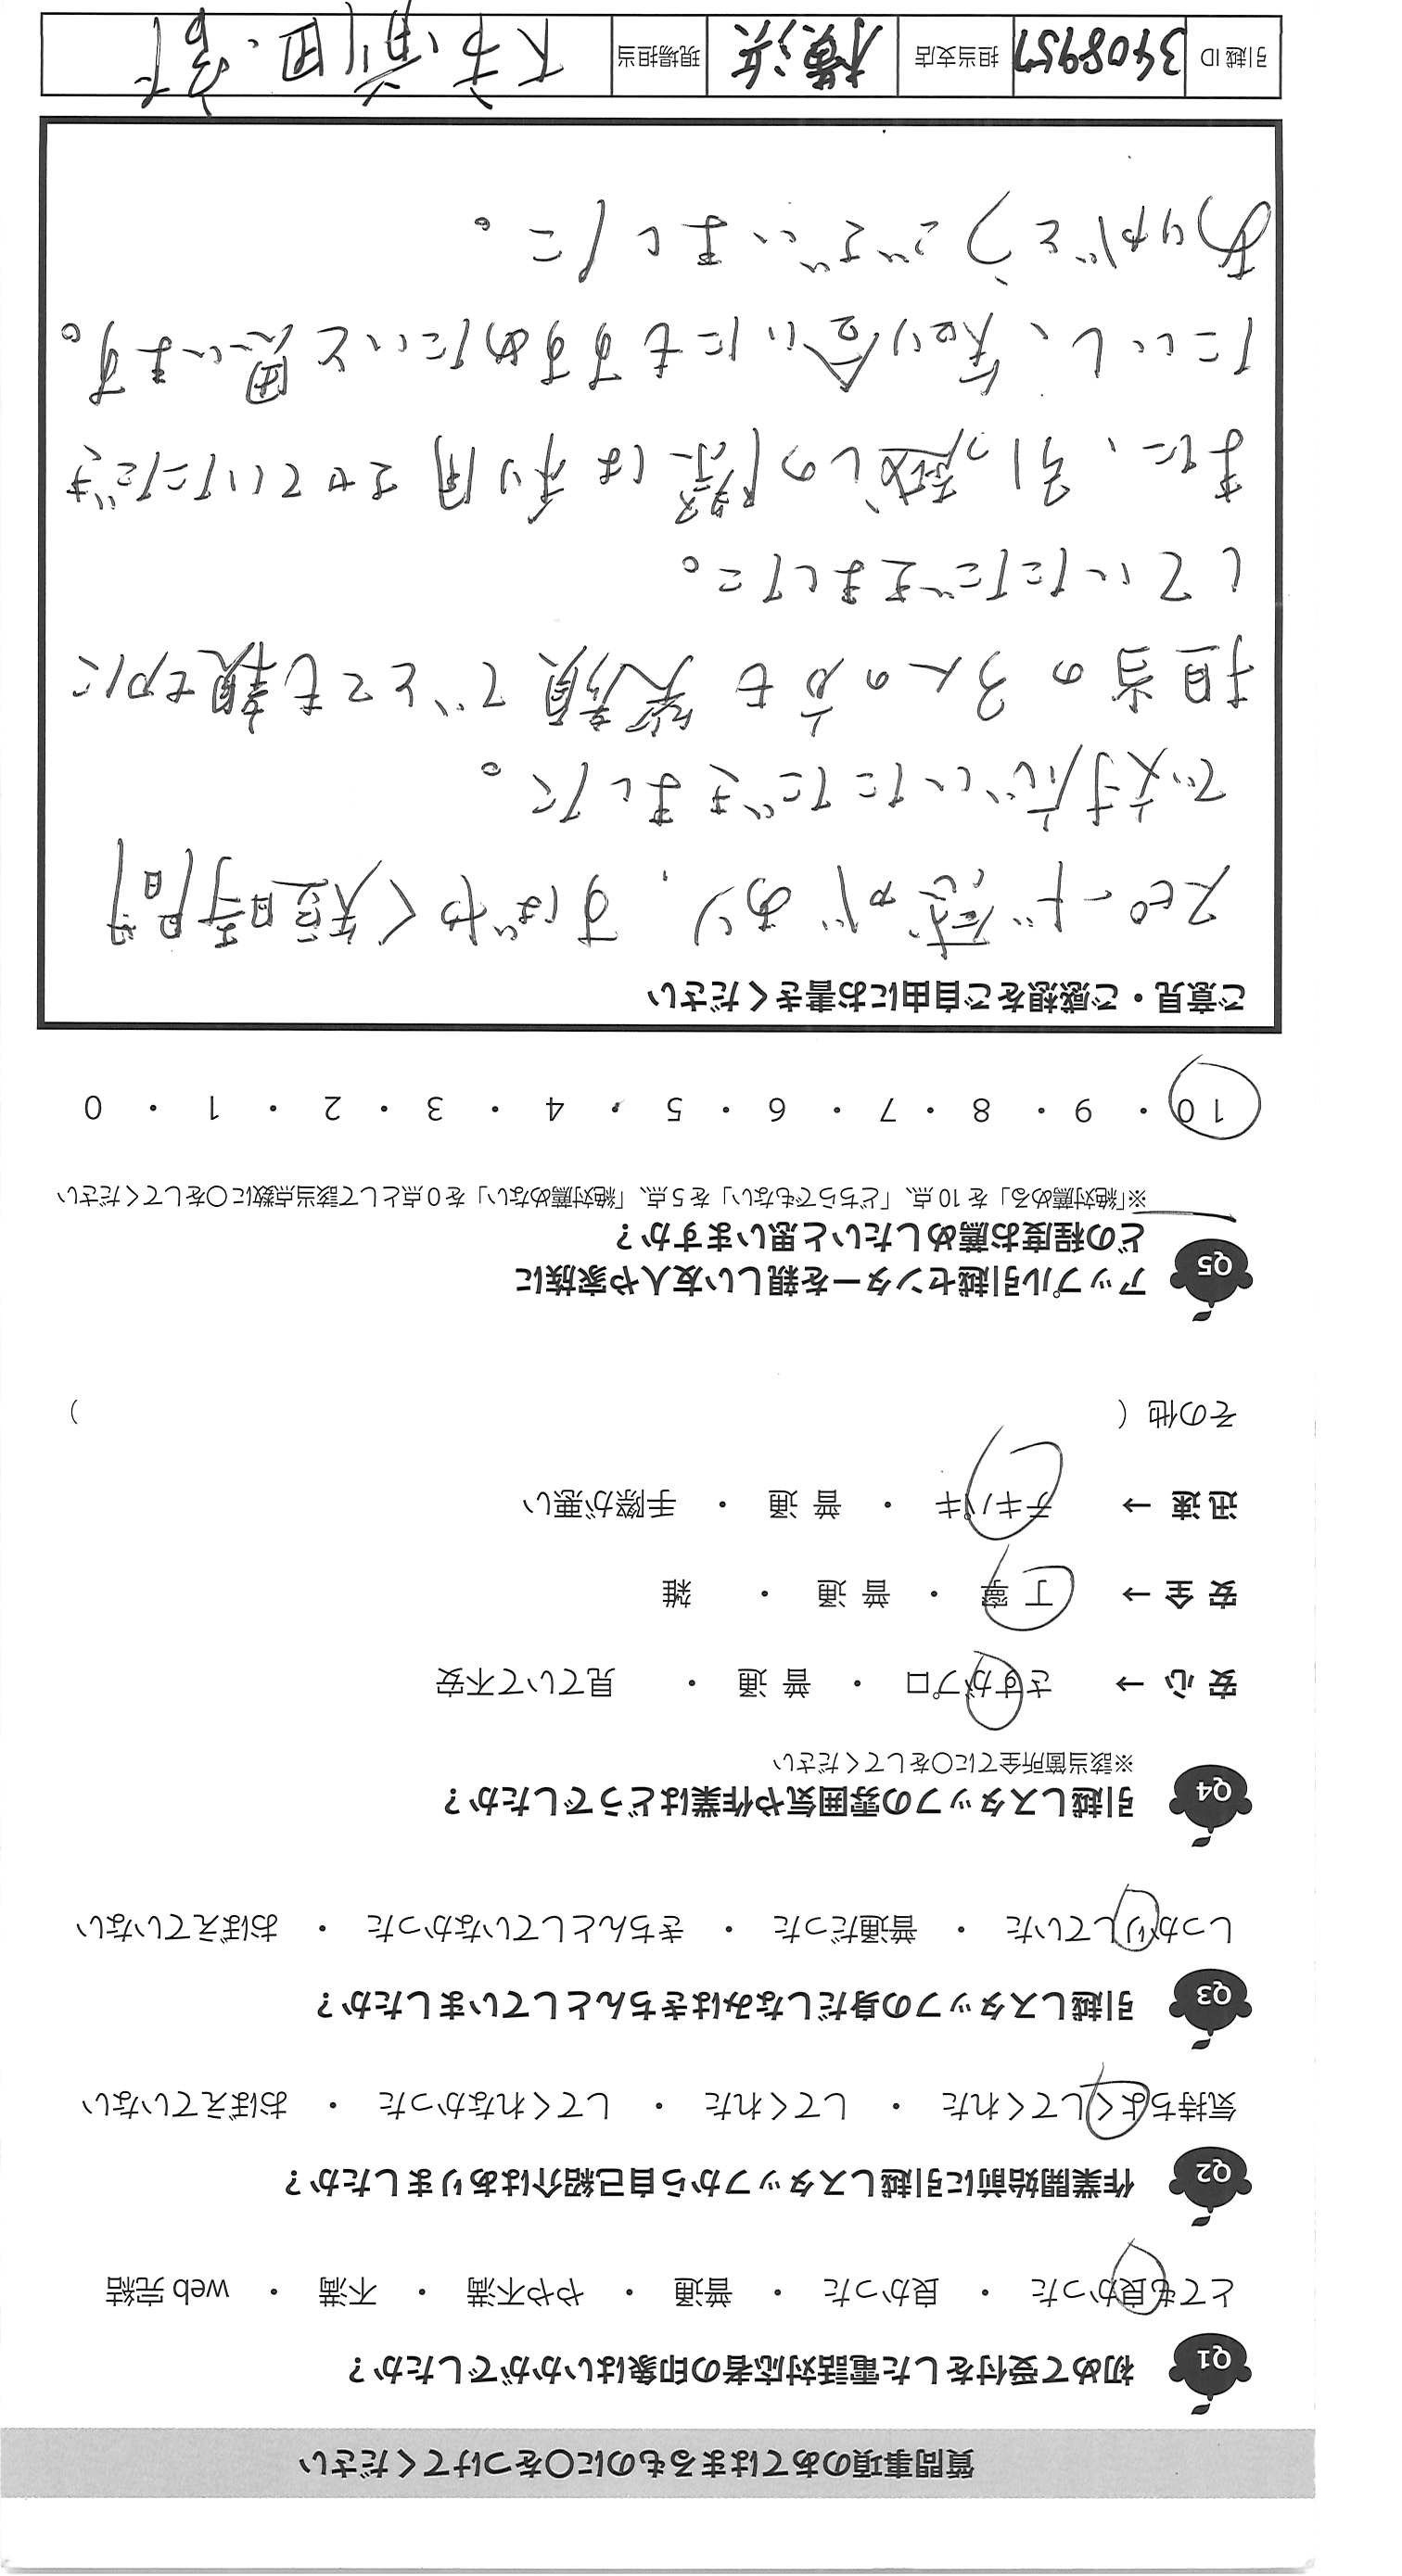 質問事項のあてはまるものに〇をつけてください
Q1 初めて受付をした電話対応者の印象はいかがでしたか?
とても良かった ・ 良かった ・ 普通 ・ やや不満 ・ 不満 ・ web 完結
Q2 作業開始前に引越しスタッフから自己紹介はありましたか?
気持ちよくしてくれた ・ してくれた ・ してくれなかった ・ おぼえていない
Q3 引越しスタッフの身だしなみはきちんとしていましたか?
しっかりしていた ・ 普通だった ・ きちんとしていなかった ・ おぼえていない
Q4 引越しスタッフの雰囲気や作業はどうでしたか?
※該当箇所全てに〇をしてください
安 心 → さすがプロ ・ 普 通 ・ 見ていて不安
安 全 → 丁 寧 ・ 普 通 ・ 雑
迅 速 → テキパキ ・ 普 通 ・ 手際が悪い
その他 ( )
Q5 アップル引越センターを親しい友人や家族に
どの程度お薦めしたいと思いますか?
※「絶対薦める」を 10 点、「どちらでもない」を 5 点、「絶対薦めない」を 0 点として該当点数に〇をしてください
10 ・ 9 ・ 8 ・ 7 ・ 6 ・ 5 ・ 4 ・ 3 ・ 2 ・ 1 ・ 0
ご意見・ご感想をご自由にお書きください
スピード感があり、すばやく短時間
で対応いただきました。
担当の3人の方も笑顔でとても親切に
していただきました。
また、引っ越しの際は利用させていただき
たいし、知り合いにもすすめたいと思います。
ありがとうございました。
引越 ID 3408957 担当支店 横浜 現場担当